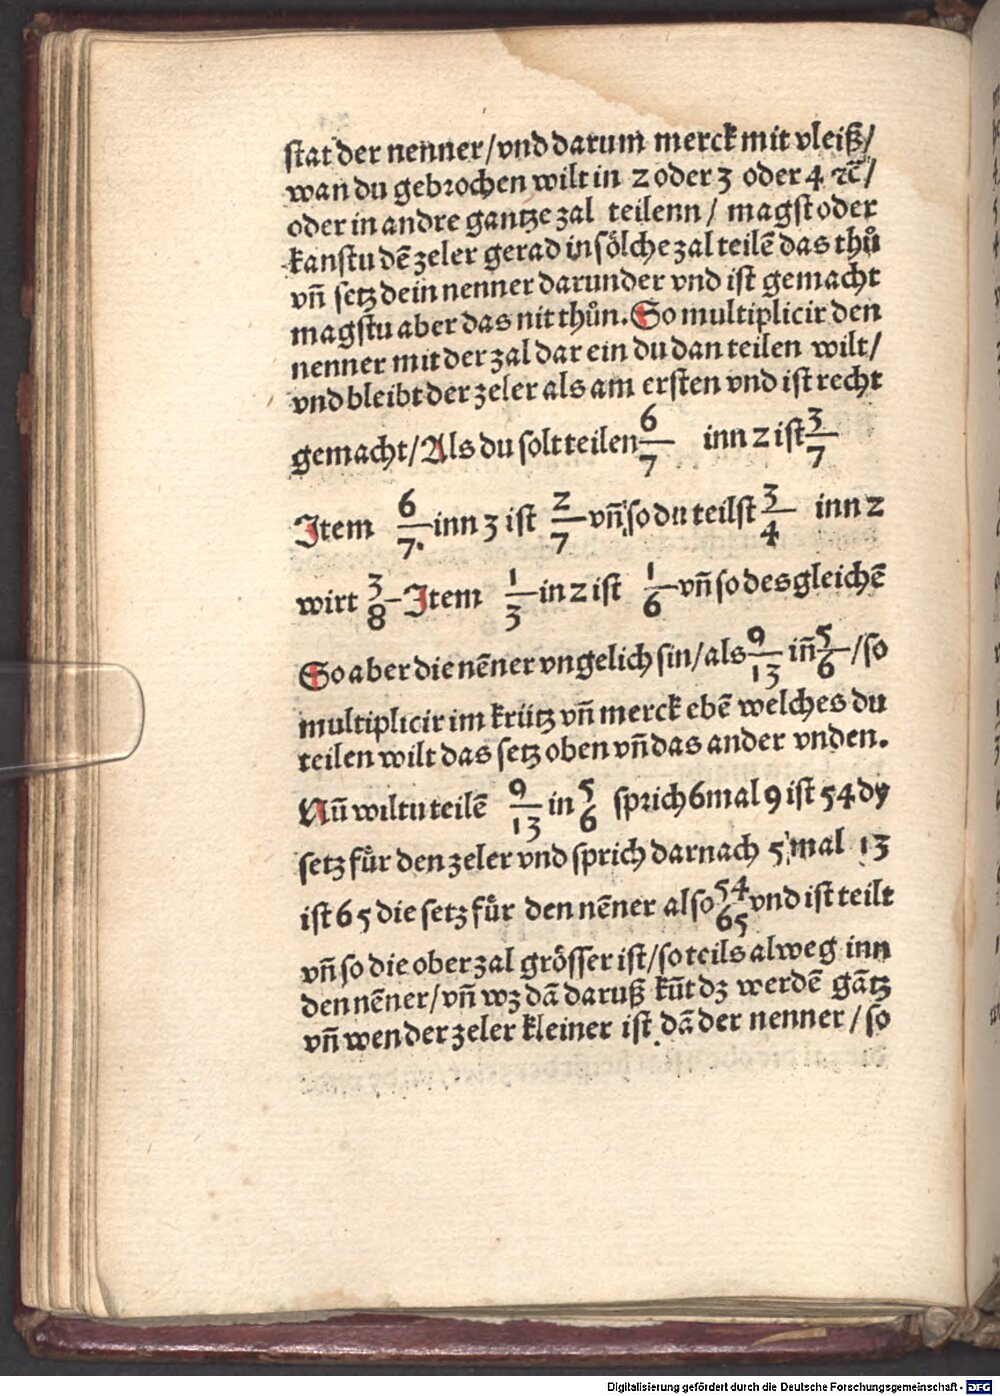 stat der nenner/vnd darum merck mit vleiß/
wan du gebrochen wilt in 2 oder 3 oder 4 ꝛc̄/
oder in andre gantze zal teilenn/ magst oder
kanstu dē zeler gerad in sölche zal teilē das thuͦ
vn̄ setz dein nenner darunder vnd ist gemacht
magstu aber das nit thuͦn. So multiplicir den
nenner mit der zal dar ein du dan teilen wilt/
vnd bleibt der zeler als am ersten vnd ist recht
gemacht/Als du solt teilen 6/7 inn 2 ist 3/7
Item 6/7. inn 3 ist 2/7 vn̄ so du teilst 3/4 inn 2
wirt 3/8 Item 1/3 in 2 ist 1/6 vn̄ so desgleichē
So aber die nēner vngelich sin/als 9/13 in̄ 5/6/so
multiplicir im krütz vn̄ merck ebē welches du
teilen wilt das setz oben vn̄ das ander vnden.
Nū wiltu teilē 9/13 in 5/6 sprich 6 mal 9 ist 54 dy
setz für den zeler vnd sprich darnach 5 mal 13
ist 65 die setz für den nēner also 54/65 vnd ist teilt
vn̄ so die ober zal grösser ist/so teils alweg inn
den nēner/vn̄ wz dā daruß kūt dz werdē gātz
vn̄ wen der zeler kleiner ist dā der nenner/so
Digitalisierung gefördert durch die Deutsche Forschungsgemeinschaft - DFG